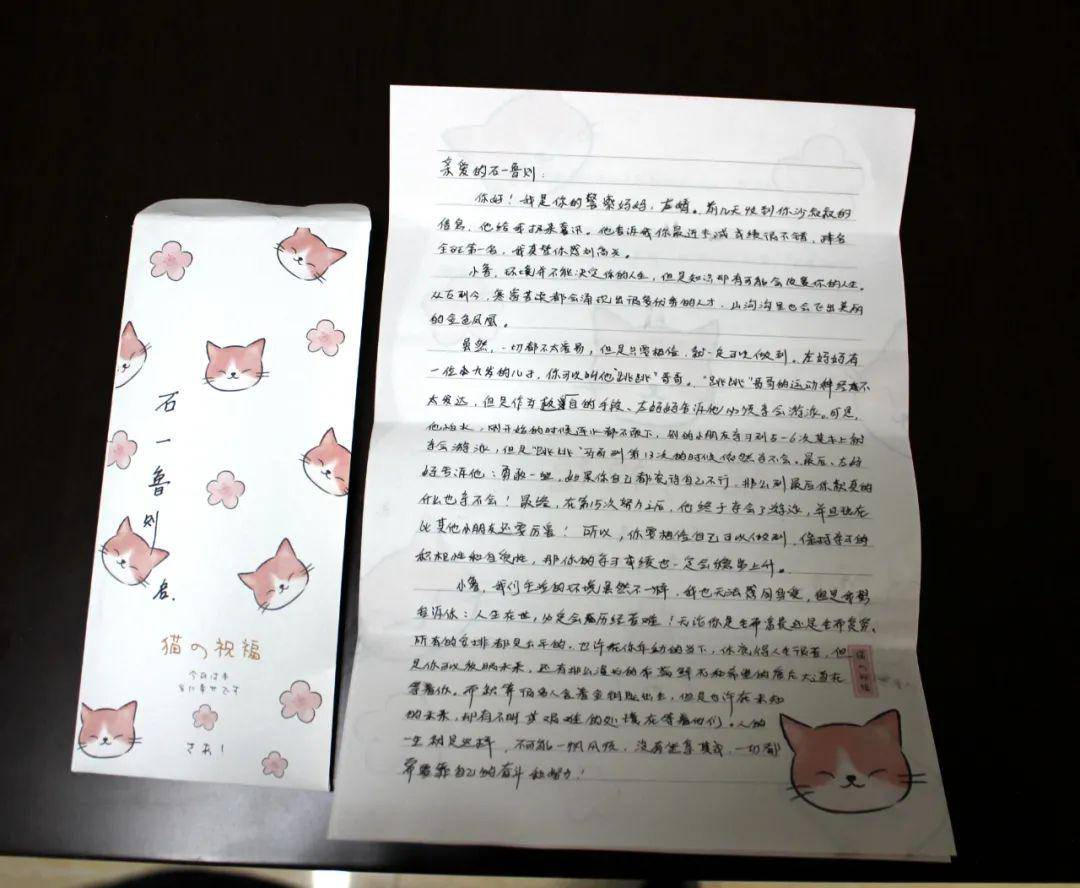 石
一
鲁
则
名.
猫の祝福
今日は本
当に幸せです
さぁ!
亲爱的石一鲁则:
你好!我是你的警察妈妈,左婧。前几天收到你沙叔叔的
信息,他给我报来喜讯。他告诉我你最近考试成绩很不错,排名
全班第一名,我真替你感到高兴。
小鲁,环境并不能决定你的人生,但是知识却有可能会改变你的人生。
从古到今,寒窗苦读都会涌现出很多优秀的人才,山沟沟里也会飞出美丽
的金色凤凰。
虽然,一切都不太容易,但是只要相信,就一定可以做到。左妈妈有
一位九岁的儿子,你可以叫他“跳跳”哥哥。“跳跳”哥哥的运动神经不
太发达,但是作为救命的手段,左妈妈告诉他必须学会游泳。可是,
他怕水,刚开始的时候连水都不敢下,别的小朋友学习到5-6次基本上都
学会游泳,但是“跳跳”哥哥到第13次的时候依然学不会。最后,左妈
妈告诉他:勇敢一些,如果你自己都觉得自己不行,那么到最后你就真的
什么也学不会!最终,在第15次努力之后,他终于学会了游泳,并且现在
比其他小朋友还要厉害!所以,你要相信自己可以做到,保持学习的
积极性和自觉性,那你的学习成绩也一定会稳步上升。
小鲁,我们生活的环境虽然不一样,我也无法感同身受,但是我想
告诉你:人生在世,必定会历经苦难!无论你是生而富贵还是生而贫穷,
所有的安排都是公平的,也许在你年幼的当下,你觉得人生很苦,但
是你可以放眼未来,还有那么漫长的幸福鲜花和希望的康庄大道在
等着你。有很多人含着金钥匙出生,但是也许在未知
的未来,却有不同艰难的处境在等着他们。人的
一生就是这样,不可能一帆风顺,没有坐享其成,一切都
需要靠自己的奋斗和努力!
猫の祝福